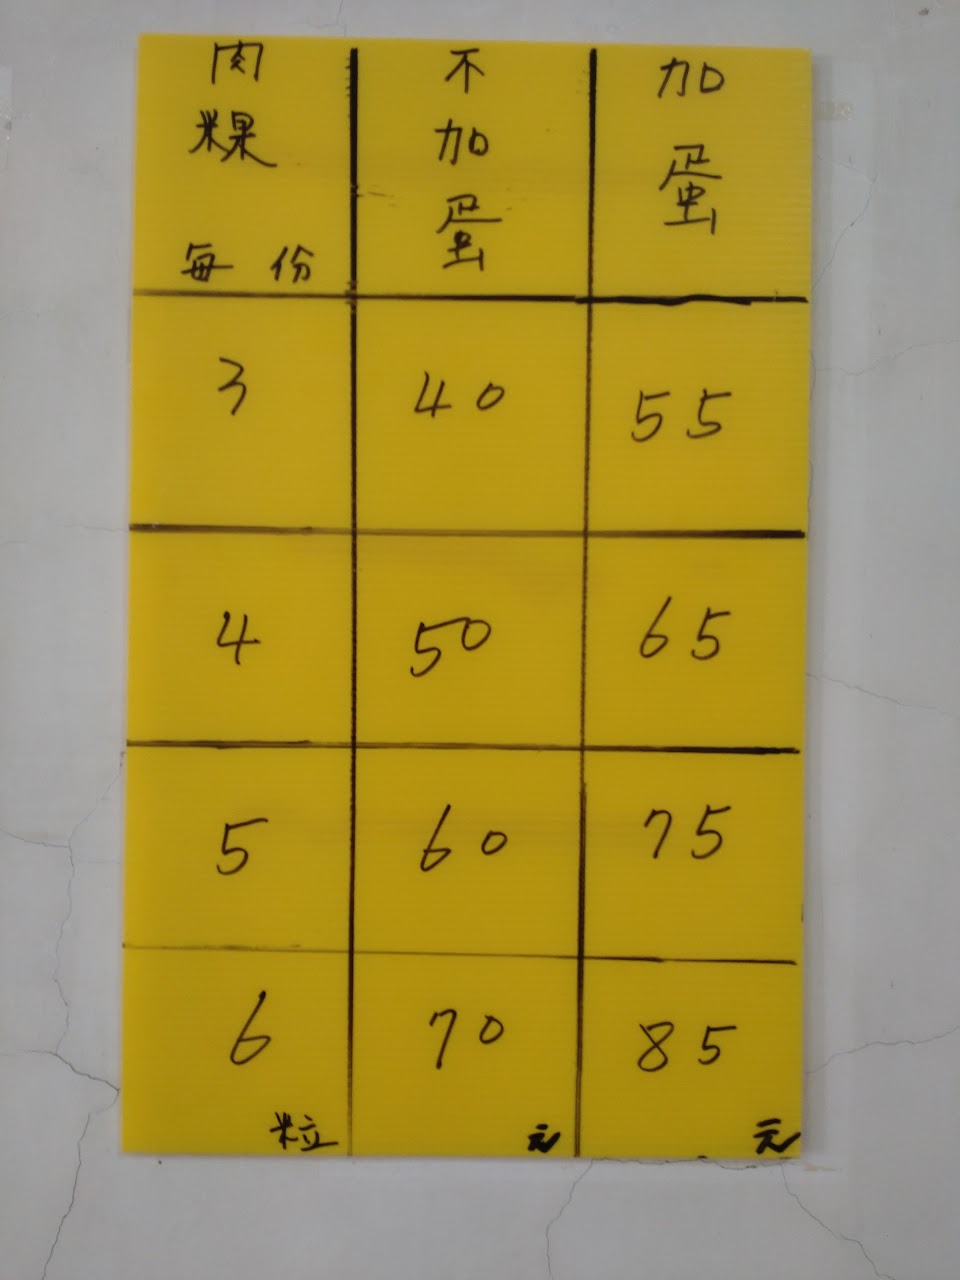 肉粿 不加蛋 加蛋
每份
3 40 55
4 50 65
5 60 75
6 70 85
粒 元 元